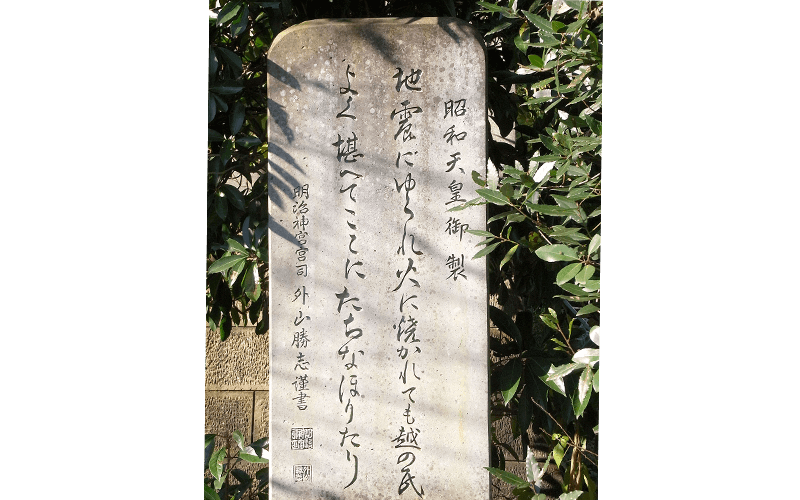 昭和天皇御製
地震にゆられ火に焼かれても越の民
よく堪へてここにたちなほりたり
明治神宮宮司 外山勝志謹書